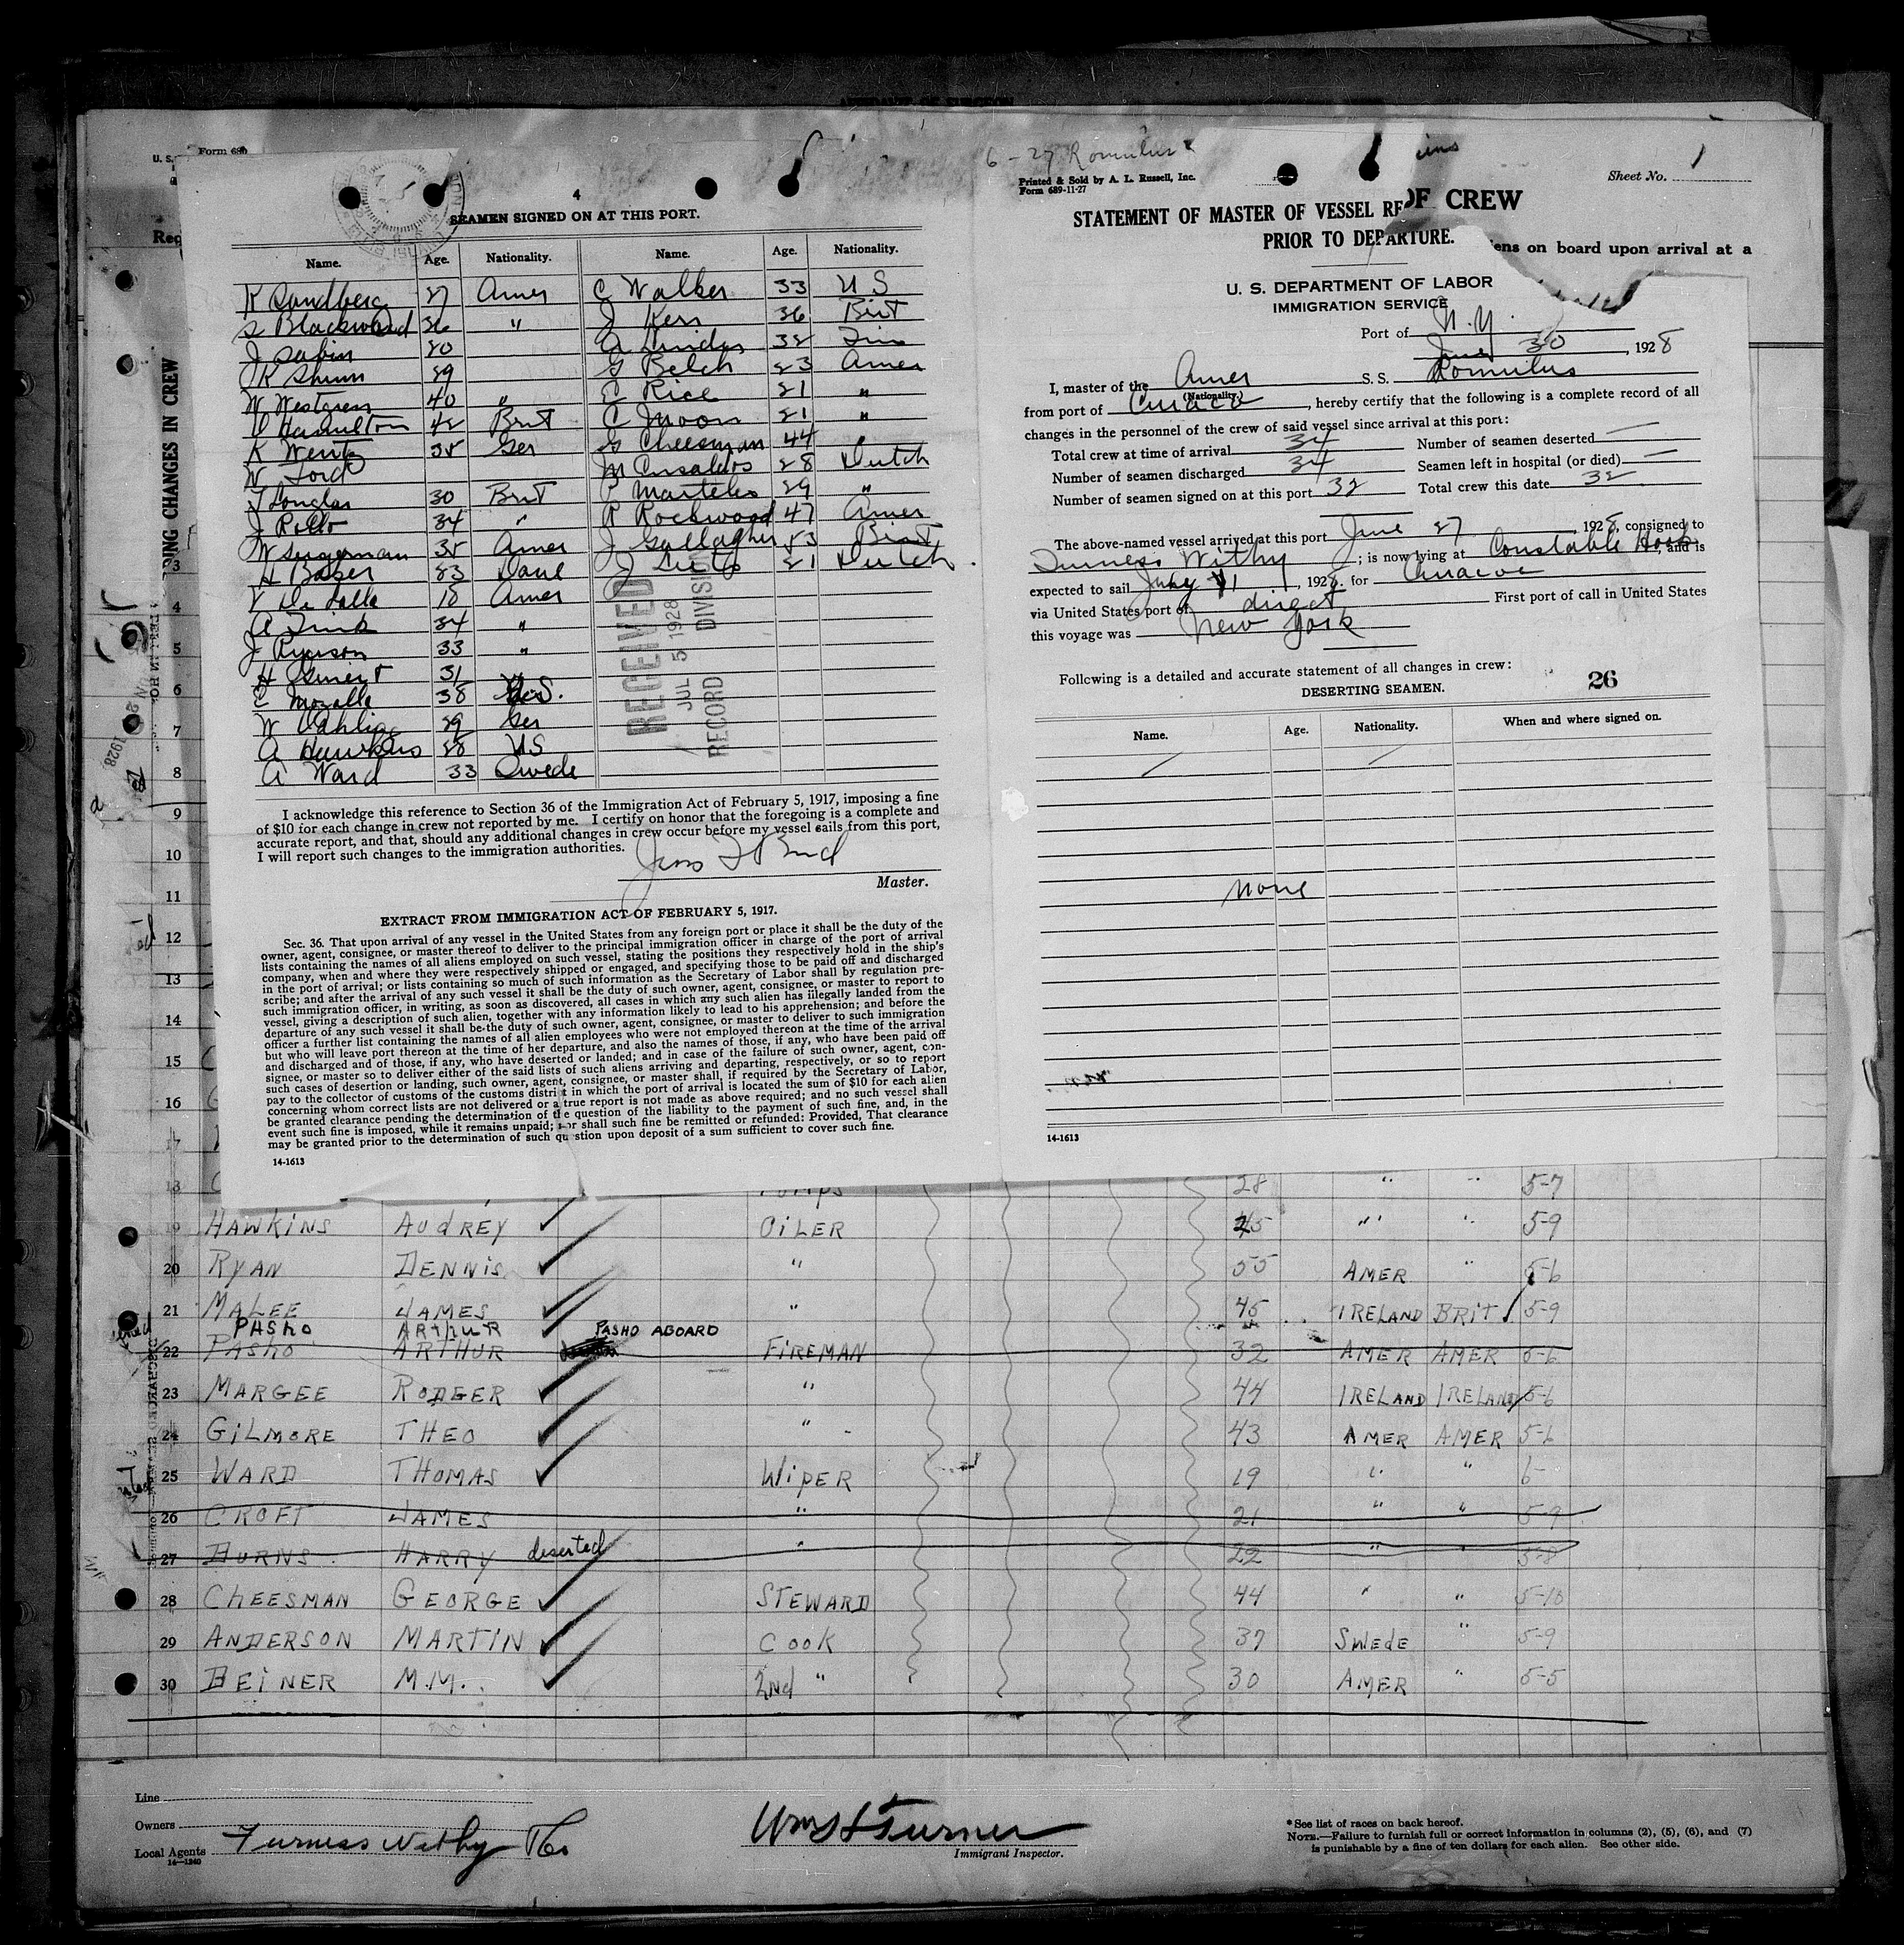 Form 689
4
SEAMEN SIGNED ON AT THIS PORT.
Name. Age. Nationality. Name. Age. Nationality.
K Sandberg 27 Amer C Walker 33 U S
S Blackwood 36 " J Kerr 36 Brit
J Sabin 20 A Linder 32 Fin
K Shum 29 G Belch 23 Amer
W Westgren 40 " E Rice 21 "
V Hamilton 42 Brit C Moon 21 "
K Wentz 35 Ger G Cheesman 44 "
W Ford M 28 Dutch
T Douglas 30 Brit P Martels 29 "
J Rollo 34 " R Rockwood 47 Amer
W Sugerman 35 Amer J Gallagher 53 Brit
H Baker 23 Dane J 21 Dutch
V De Lalla 18 Amer
A Fink 34 "
J Ryerson 33 "
H 31
C Mozelle 38 U.S.
W Vahlig 29 Ger
A Hawkins 28 US
A Ward 33 Swede
RECEIVED
JUL 5 1928
RECORD DIVISION
I acknowledge this reference to Section 36 of the Immigration Act of February 5, 1917, imposing a fine
of $10 for each change in crew not reported by me. I certify on honor that the foregoing is a complete and
accurate report, and that, should any additional changes in crew occur before my vessel sails from this port,
I will report such changes to the immigration authorities.
Master.
EXTRACT FROM IMMIGRATION ACT OF FEBRUARY 5, 1917.
Sec. 36. That upon arrival of any vessel in the United States from any foreign port or place it shall be the duty of the
owner, agent, consignee, or master thereof to deliver to the principal immigration officer in charge of the port of arrival
lists containing the names of all aliens employed on such vessel, stating the positions they respectively hold in the ship's
company, when and where they were respectively shipped or engaged, and specifying those to be paid off and discharged
in the port of arrival; or lists containing so much of such information as the Secretary of Labor shall by regulation pre-
scribe; and after the arrival of any such vessel it shall be the duty of such owner, agent, consignee, or master to report to
such immigration officer, in writing, as soon as discovered, all cases in which any such alien has illegally landed from the
vessel, giving a description of such alien, together with any information likely to lead to his apprehension; and before the
departure of any such vessel it shall be the duty of such owner, agent, consignee, or master to deliver to such immigration
officer a further list containing the names of all alien employees who were not employed thereon at the time of the arrival
but who will leave port thereon at the time of her departure, and also the names of those, if any, who have been paid off
and discharged and of those, if any, who have deserted or landed; and in case of the failure of such owner, agent, con-
signee, or master so to deliver either of the said lists of such aliens arriving and departing, respectively, or so to report
such cases of desertion or landing, such owner, agent, consignee, or master shall, if required by the Secretary of Labor,
pay to the collector of customs of the customs district in which the port of arrival is located the sum of $10 for each alien
concerning whom correct lists are not delivered or a true report is not made as above required; and no such vessel shall
be granted clearance pending the determination of the question of the liability to the payment of such fine, and, in the
event such fine is imposed, while it remains unpaid; nor shall such fine be remitted or refunded: Provided, That clearance
may be granted prior to the determination of such question upon deposit of a sum sufficient to cover such fine.
14-1613
6-27 Romulus
Printed & Sold by A. L. Russell, Inc.
Form 689-11-27
STATEMENT OF MASTER OF VESSEL RE
PRIOR TO DEPARTURE.
OF CREW
Sheet No. 1
iens on board upon arrival at a
U. S. DEPARTMENT OF LABOR
IMMIGRATION SERVICE
Port of N.Y.
June 30, 1928
I, master of the Amer S. S. Romulus
(Nationality.)
from port of Curacao, hereby certify that the following is a complete record of all
changes in the personnel of the crew of said vessel since arrival at this port:
Total crew at time of arrival 34 Number of seamen deserted —
Number of seamen discharged 34 Seamen left in hospital (or died) —
Number of seamen signed on at this port 32 Total crew this date 32
The above-named vessel arrived at this port June 27, 1928, consigned to
Furness Withy; is now lying at Constable Hook, and is
expected to sail July 1, 1928, for Curacoa
via United States port of direct First port of call in United States
this voyage was New York
Following is a detailed and accurate statement of all changes in crew:
DESERTING SEAMEN.
26
Name. Age. Nationality. When and where signed on.
None
14-1613
DING CHANGES IN CREW
3
4
5
6
7
8
9
10
11
12
13
14
15
16
17
18 28 " " 5-7
19 HAWKINS AUDREY OILER 25 " " 5-9
20 RYAN DENNIS " 55 AMER " 5-6
21 MALEE JAMES " 45 IRELAND BRIT 5-9
PASHO ARTHUR PASHO ABOARD
22 PASHO ARTHUR FIREMAN 32 AMER AMER 5-6
23 MARGEE RODGER " 44 IRELAND IRELAND 5-6
24 GILMORE THEO " 43 AMER AMER 5-6
25 WARD THOMAS WIPER 19 " "
26 CROFT JAMES " 21 " " 5-9
27 BURNS HARRY deserted " 22 " " 5-8
28 CHEESMAN GEORGE STEWARD 44 " " 5-10
29 ANDERSON MARTIN COOK 37 SWEDE " 5-9
30 BEINER M.M. 2nd " 30 AMER " 5-5
Line
Owners
Local Agents Furness Withy Co
14-1240
Wm S Turner
Immigrant Inspector.
* See list of races on back hereof.
NOTE.—Failure to furnish full or correct information in columns (2), (5), (6), and (7)
is punishable by a fine of ten dollars for each alien. See other side.